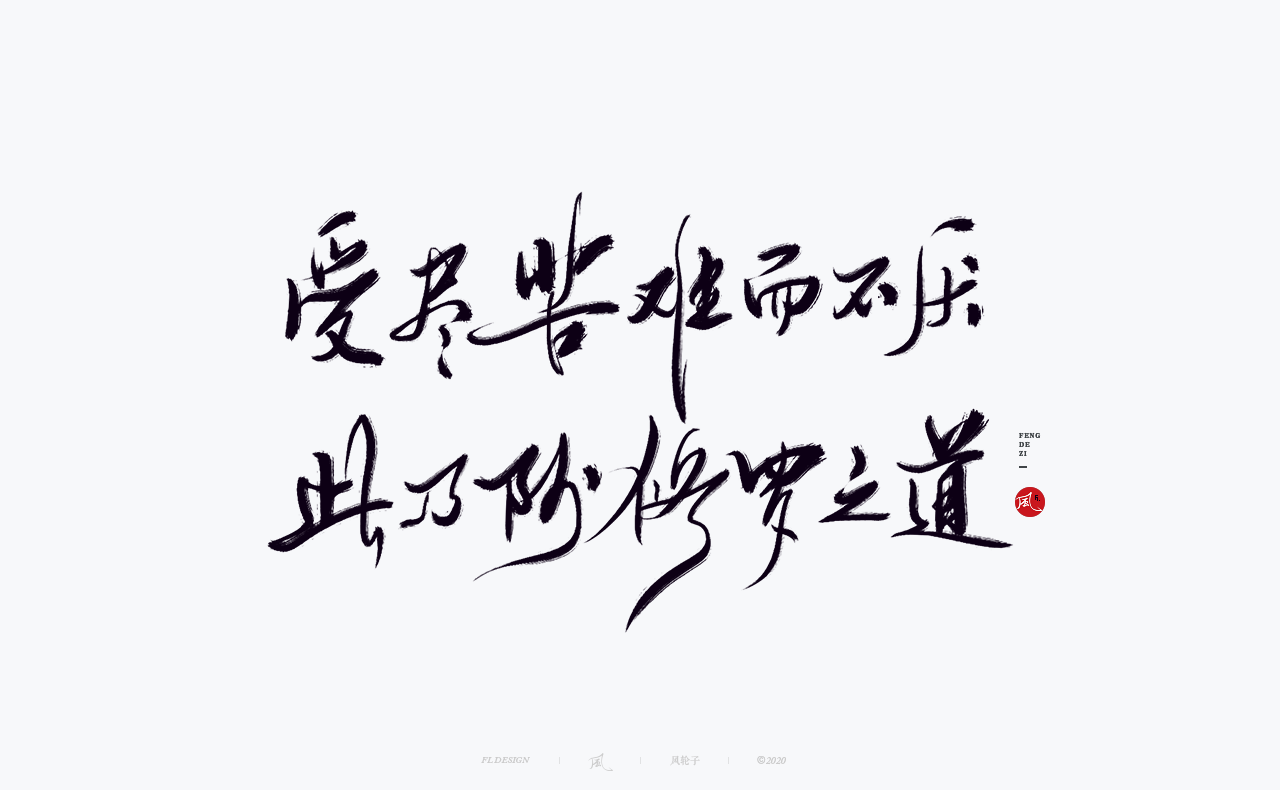 受尽苦难而不厌
此乃阿修罗之道
FENG
DE
ZI
風
FL.DESIGN
風
风轮子
©2020